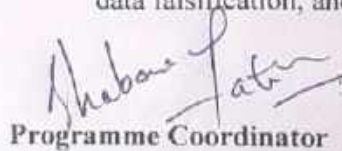 data falsification, and
Programme Coordinator